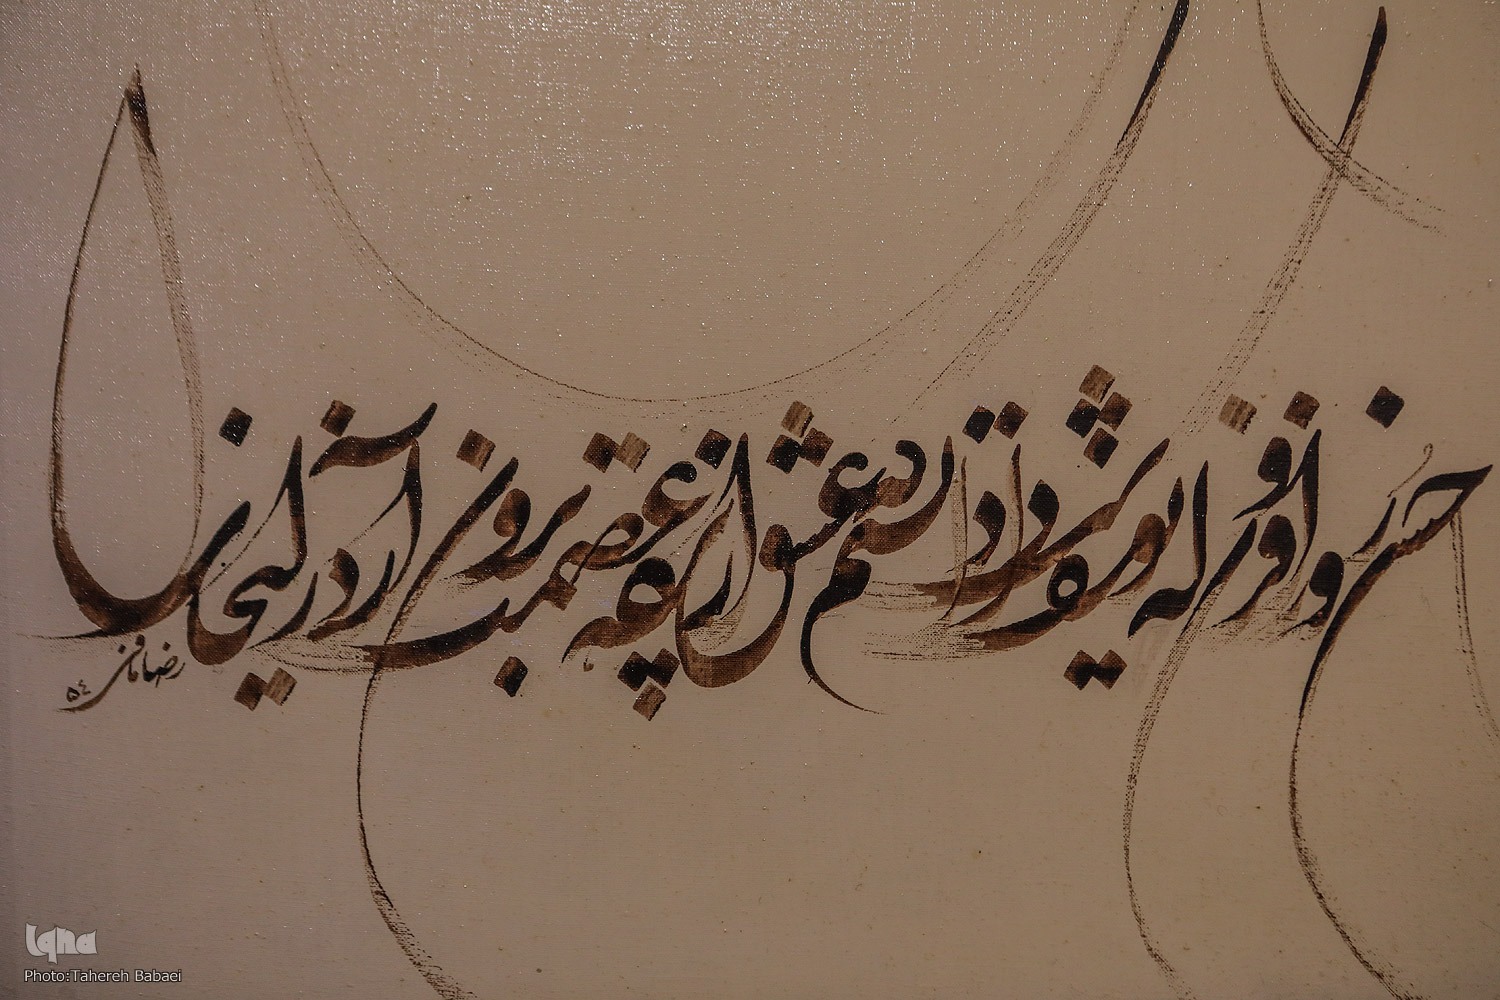 حسن روز افزون که یوسف داشت دانستم که عشق از پرده عصمت برون آرد زلیخا را
رضا مافی
۵۴
Iqna
Photo:Tahereh Babaei